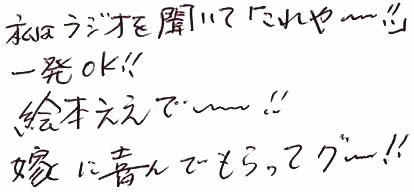 私はラジオを聞いて「これや〜!!」
一発OK!!
絵本ええで〜!!
嫁に喜んでもらってグー!!